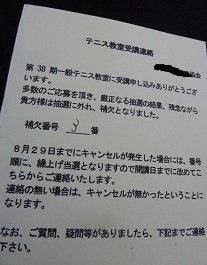 テニス教室受講連絡
協会
第38期一般テニス教室に受講申し込みありがとうござ
います。
多数のご応募を頂き、厳正なる抽選の結果、残念ながら
貴方様は抽選に外れ、補欠となりました。
補欠番号 3 番
8月29日までにキャンセルが発生した場合には、番号
順に、繰上げ当選となりますので開講日までに改めてこ
ちらからご連絡いたします。
連絡の無い場合は、キャンセルが無かったということに
なります。
なお、ご質問、疑問等がありましたら、下記までご連絡
下さい。